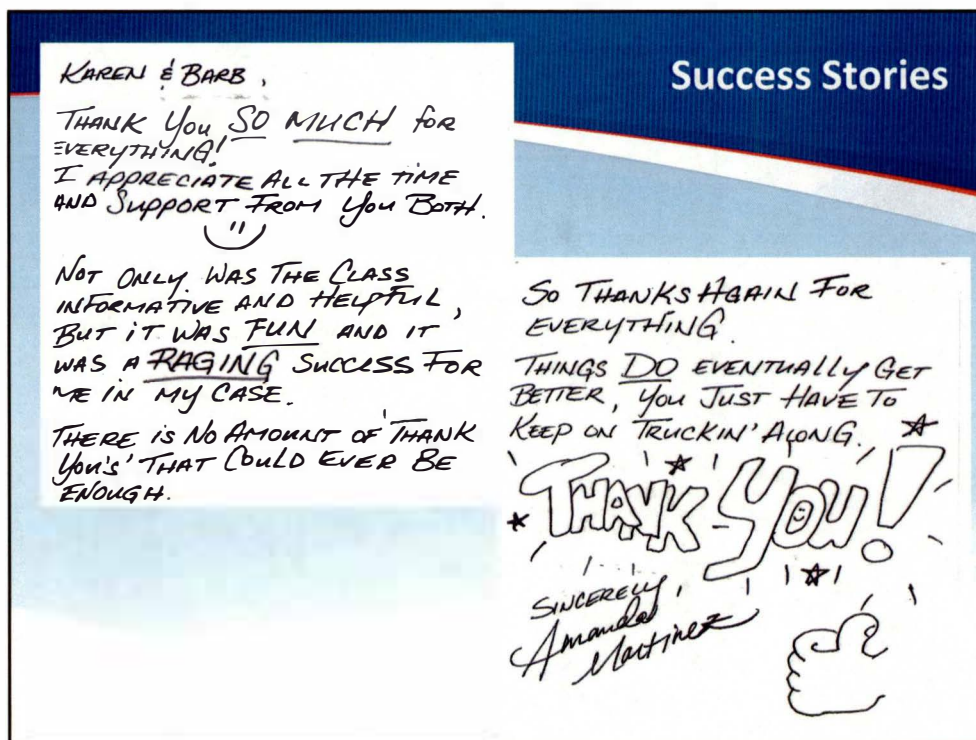 Success Stories
KAREN & BARB,
THANK YOU SO MUCH FOR
EVERYTHING!
I APPRECIATE ALL THE TIME
AND SUPPORT FROM YOU BOTH.
NOT ONLY WAS THE CLASS
INFORMATIVE AND HELPFUL,
BUT IT WAS FUN AND IT
WAS A RAGING SUCCESS FOR
ME IN MY CASE.
THERE IS NO AMOUNT OF 'THANK
YOU'S' THAT COULD EVER BE
ENOUGH.
SO THANKS AGAIN FOR
EVERYTHING.
THINGS DO EVENTUALLY GET
BETTER, YOU JUST HAVE TO
KEEP ON TRUCKIN' ALONG.
THANK YOU!
SINCERELY,
Amanda
Martinez